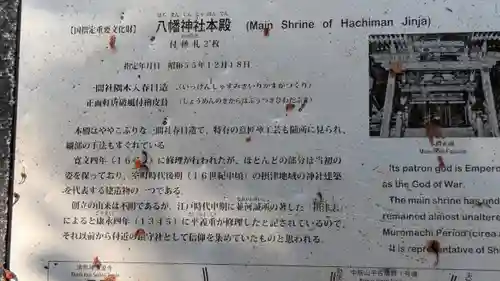 【国指定重要文化財】
はち まん じん じゃ ほん でん
八幡神社本殿 (Main Shrine of Hachiman Jinja)
付棟札2枚
指定年月日 昭和55年12月18日
一間社隅木入春日造 (いっけんしゃすみきいりかすがづくり)
正面軒唐破風付檜皮葺 (しょうめんのきからはふつきひわだぶき)
本殿はややこぶりな一間社春日造で、特有の意匠や工芸も随所に見られ、
細部の手法もすぐれている
寛文四年(16)に修理が行われたが、ほとんどの部分は当初の
姿を保っており、室町時代後期(16世紀中頃)の摂津地域の神社建築
を代表する建造物の一つである。
創立の由来は不明であるが、江戸時代中期に並河誠所の著した「摂津志」
によると康永四年(1345)に平義重が修理したと記されているので、
それ以前から付近の鎮守社として信仰を集めていたものと思われる。
Its patron god is Empero
as the God of War.
The main shrine has und
remained almost unalter
Muromachi Period (circa
It is representative of Sh